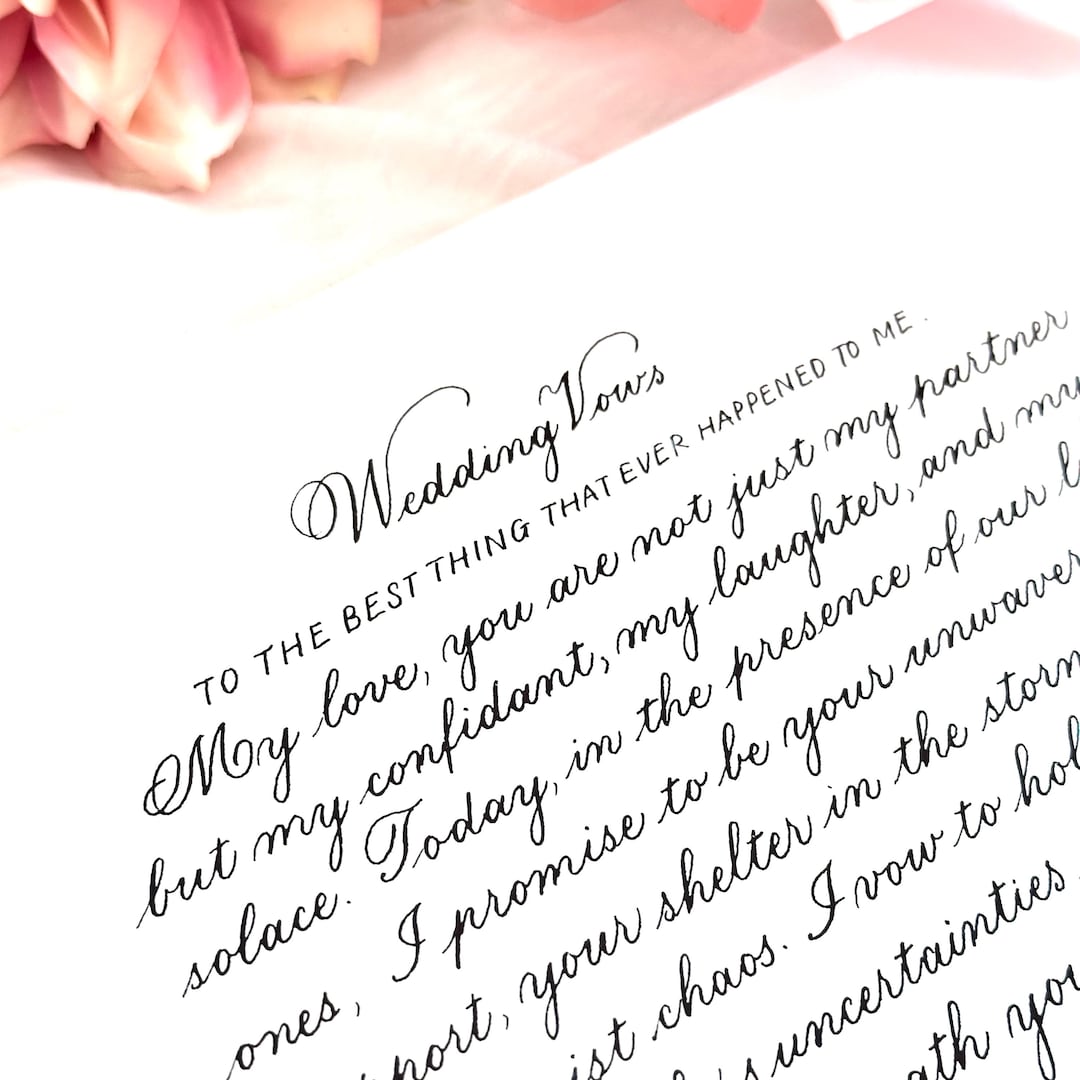 Wedding Vows
TO THE BEST THING THAT EVER HAPPENED TO ME.
My love, you are not just my partner
but my confidant, my laughter, and my
solace. Today, in the presence of our
ones, I promise to be your
your shelter in the
chaos. I vow to
uncertainties